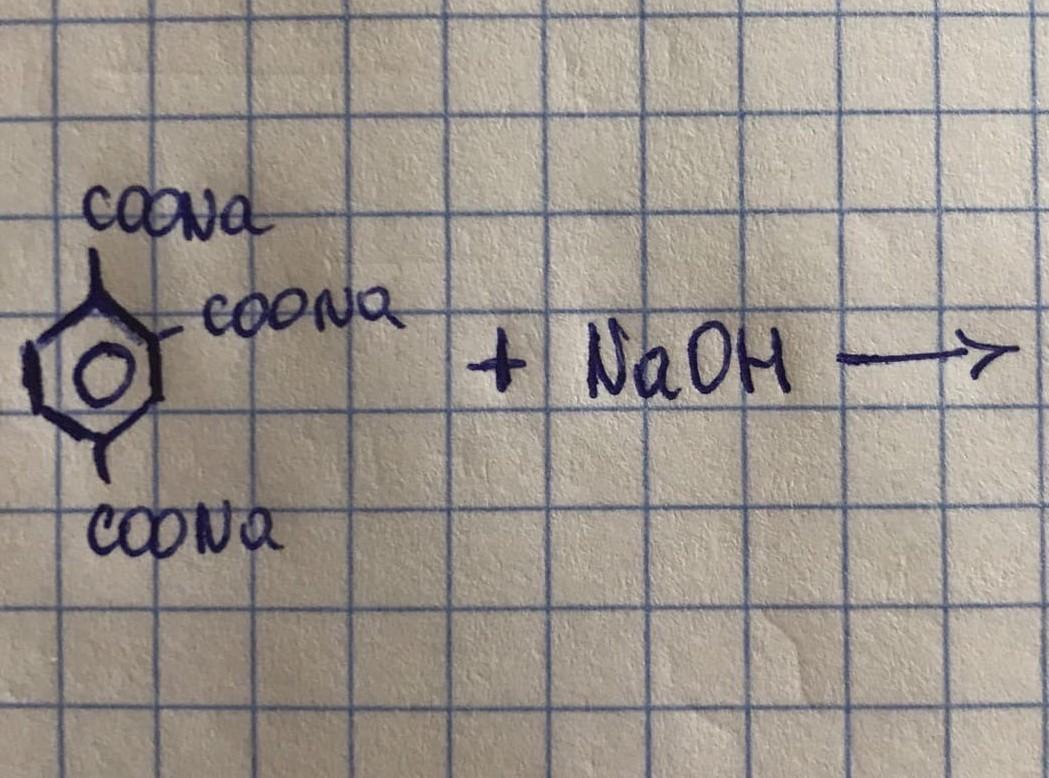 COONa
COONa
+ NaOH →
COONa